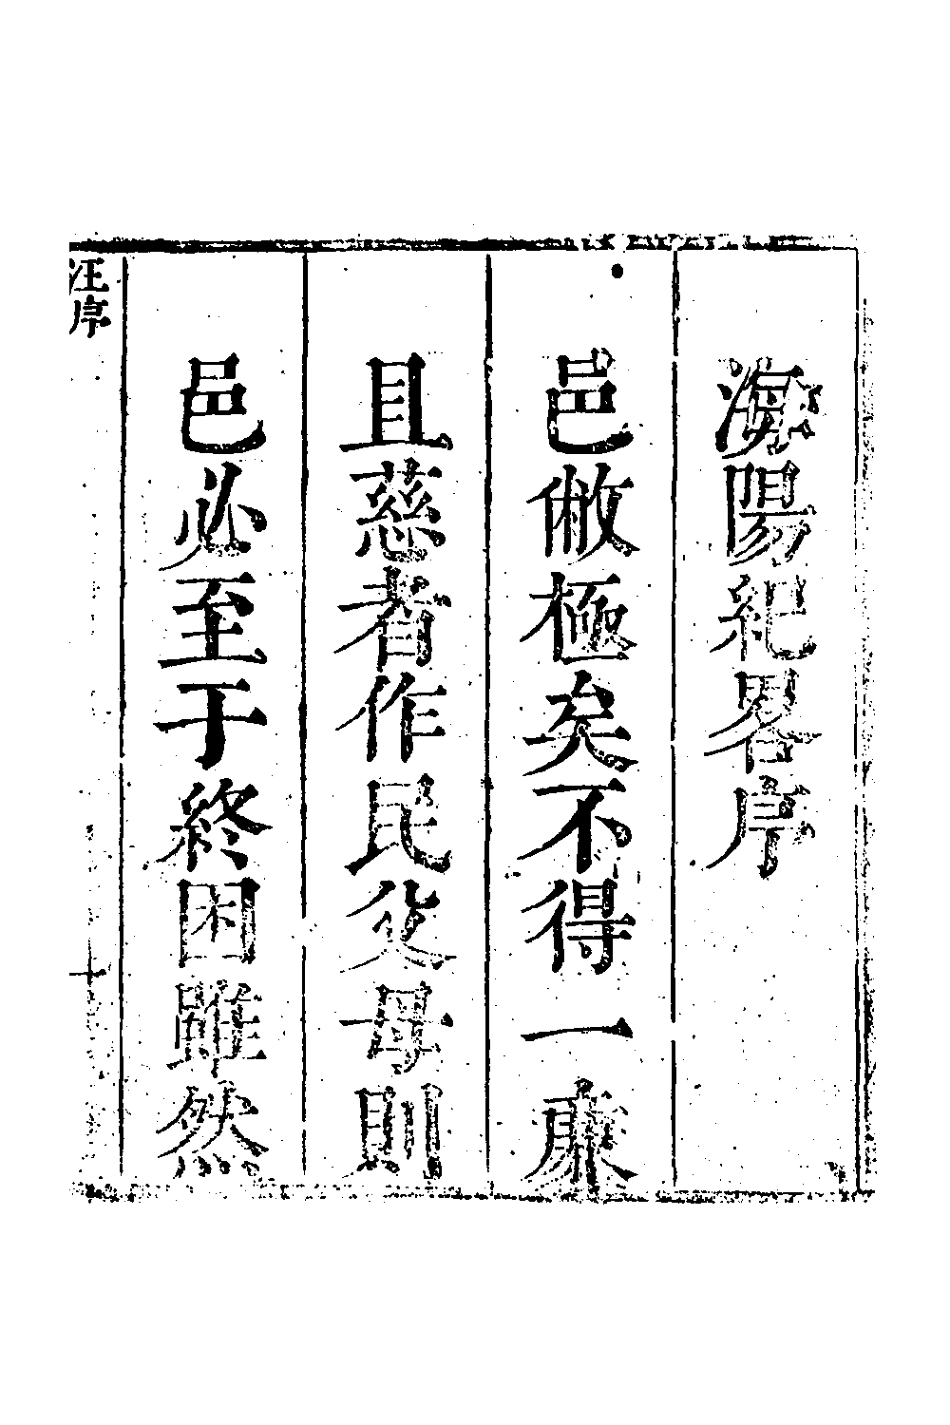 陽紀畧序
邑敝極矣不得一廉
且慈者作民父母則
邑必至于終困雖然
汪序
一